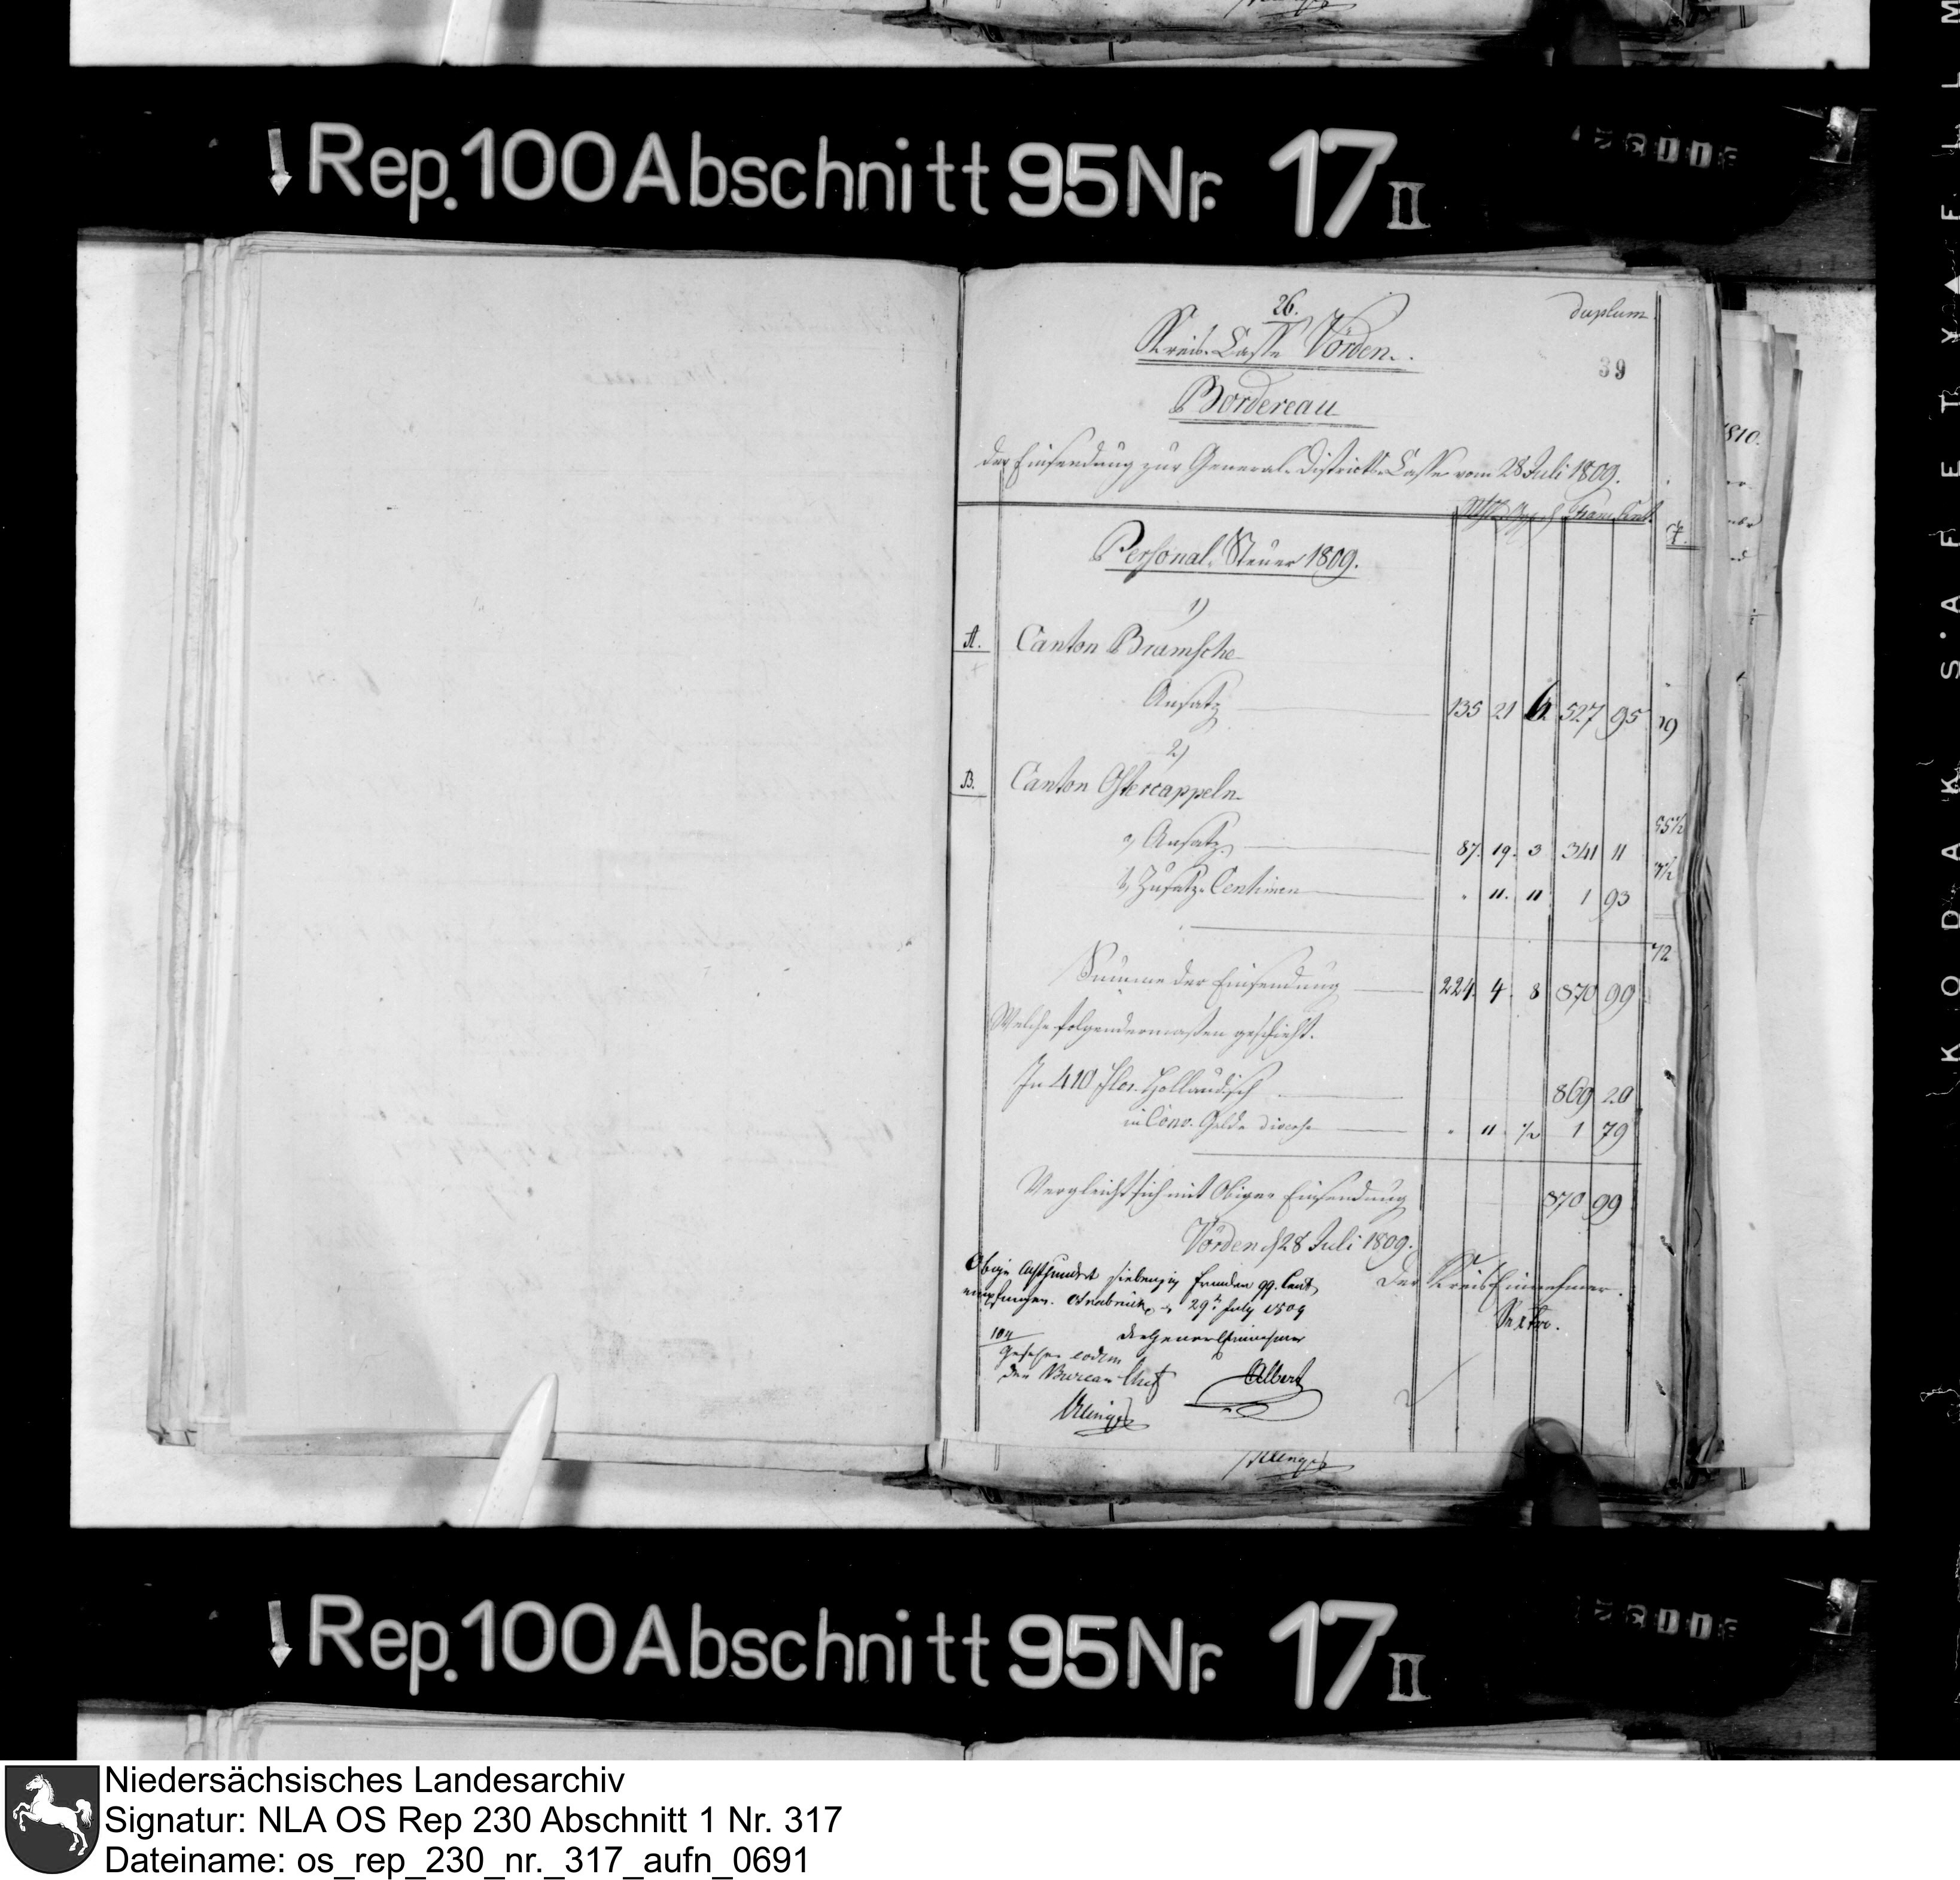 Rep. 100 Abschnitt 95 Nr. 17 II
26.
duplum.
Kreis-Casse Vörden.
39
Bordereau
der Einsendung zur General-Districts-Casse vom 28 Juli 1809.
Personal-Steuer 1809.
1)
A. Canton Bramsche
Ansatz 135 21 6 527 95
2)
B. Canton Ostercappeln
a, Ansatz 87. 19. 3 341 11
b, Zusatz-Centimen . 11. 11 1 93
Summe der Einsendung 224. 4. 8 870 99
Welche folgendermaßen geschieht.
In 410 flor. Holländisch 869 20
in Conv. Gelde diverse . 11 1 79
Vergleicht sich mit Obiger Einsendung 870 99
Vörden d 28 Juli 1809.
Der Kreis Einnehmer.
Obige Achthundert siebenzig Franken 99. Cent
empfangen. Osnabrück d 29t July 1809
der General Einnehmer
gesehen eodem
Der Bureau Chef
Albert
1810.
Rep. 100 Abschnitt 95 Nr. 17 II
KODAK SAFETY FILM
Niedersächsisches Landesarchiv
Signatur: NLA OS Rep 230 Abschnitt 1 Nr. 317
Dateiname: os_rep_230_nr._317_aufn_0691